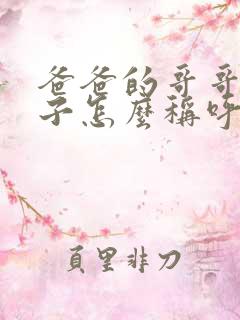 爸爸的哥哥
子怎麼稱呼
頁里非刀